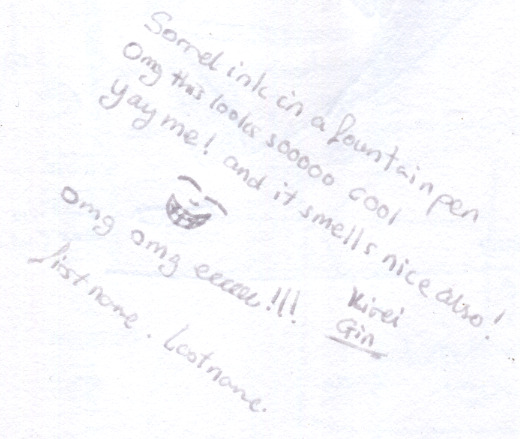 Sorrel ink in a fountain pen
Omg this looks sooooo cool
Yay me! and it smells nice also!
omg omg eeeeee!!!
Kirei
Gin
firstname. Lastname.